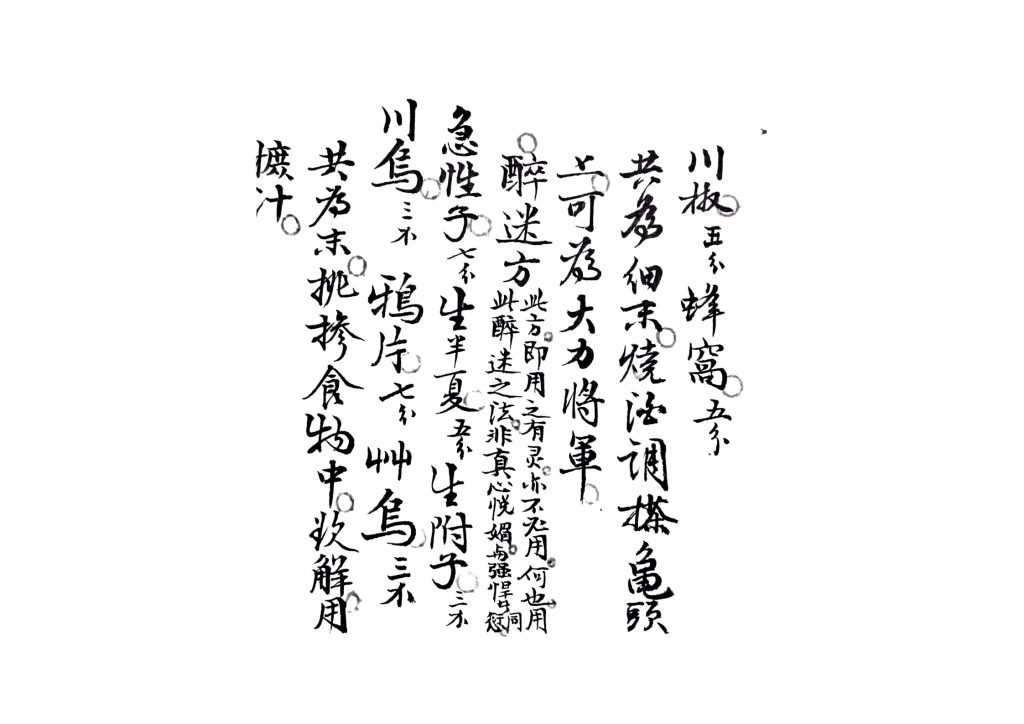 川椒五分蜂窩五分
共為細末燒酒調搽龜頭
上可為大力將軍
醉迷方
此方即用之有灵亦不必用何也用
此醉迷之法非真心悅媚与强悍同
急性子七分生半夏五分生附子三分
川烏三分鴉片七分艸烏三分
共為末挑摻食物中欲解用
汁